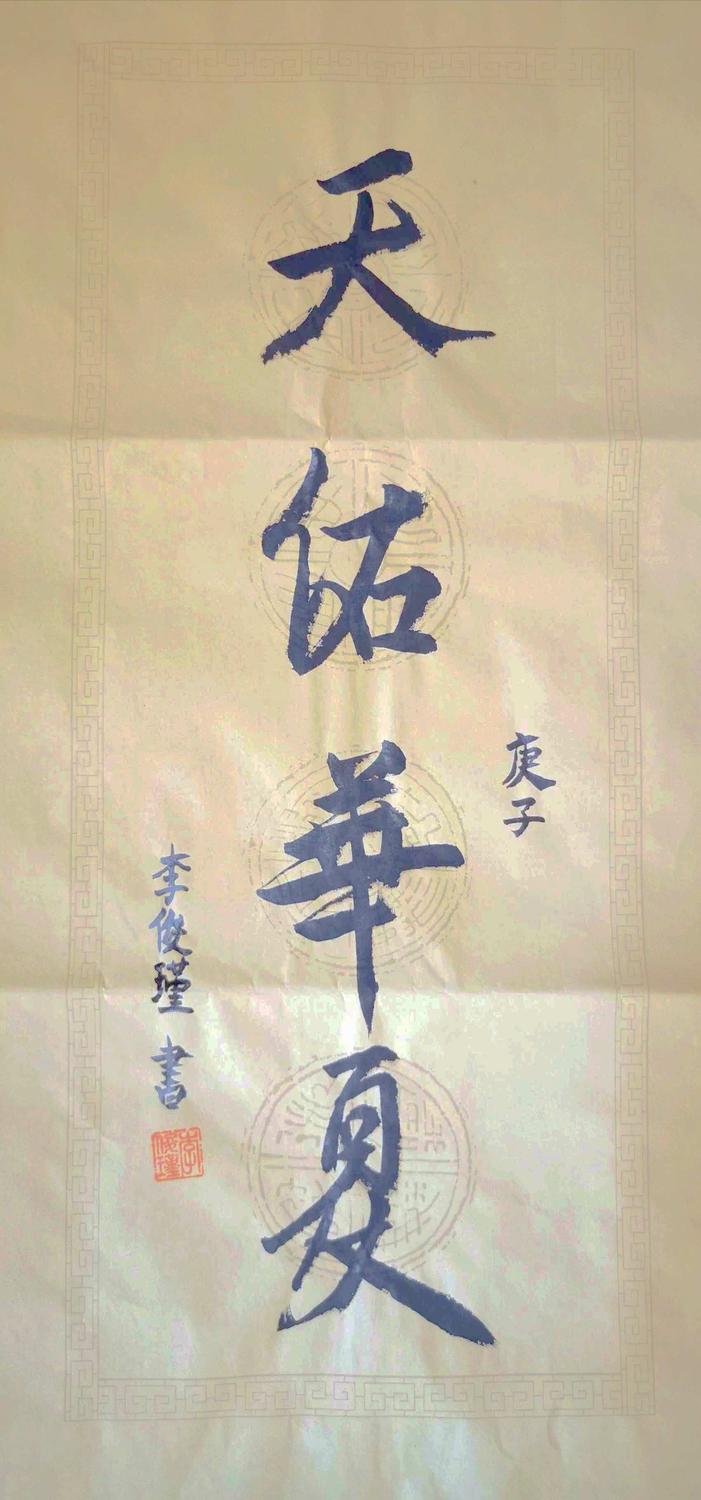 天佑華夏
庚子
李俊瑾書
李俊瑾